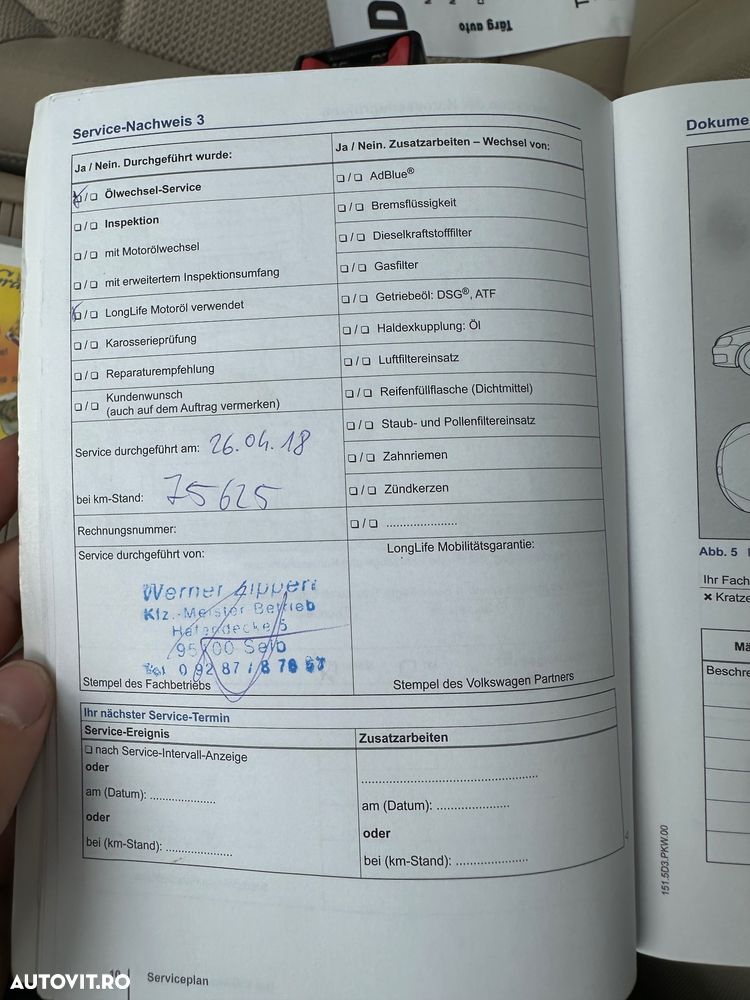 D
Târg auto
T
Service-Nachweis 3
Ja / Nein. Durchgeführt wurde:
❑/❑ Ölwechsel-Service
❑/❑ Inspektion
❑/❑ mit Motorölwechsel
❑/❑ mit erweitertem Inspektionsumfang
❑/❑ LongLife Motoröl verwendet
❑/❑ Karosserieprüfung
❑/❑ Reparaturempfehlung
❑/❑ Kundenwunsch
(auch auf dem Auftrag vermerken)
Service durchgeführt am: 26.04.18
bei km-Stand: 75625
Rechnungsnummer:
Service durchgeführt von:
Werner
Kfz.-Meister Betrieb
Selb
Tel
Stempel des Fachbetriebs
Ja / Nein. Zusatzarbeiten – Wechsel von:
❑/❑ AdBlue®
❑/❑ Bremsflüssigkeit
❑/❑ Dieselkraftstofffilter
❑/❑ Gasfilter
❑/❑ Getriebeöl: DSG®, ATF
❑/❑ Haldexkupplung: Öl
❑/❑ Luftfiltereinsatz
❑/❑ Reifenfüllflasche (Dichtmittel)
❑/❑ Staub- und Pollenfiltereinsatz
❑/❑ Zahnriemen
❑/❑ Zündkerzen
❑/❑ .....................
LongLife Mobilitätsgarantie:
Stempel des Volkswagen Partners
Ihr nächster Service-Termin
Service-Ereignis
❑ nach Service-Intervall-Anzeige
oder
am (Datum): ....................
oder
bei (km-Stand): ....................
Zusatzarbeiten
.....................................................
am (Datum): ......................
oder
bei (km-Stand): ......................
10 Serviceplan
Dokume
Abb. 5
Ihr Fach
× Kratze
Mä
Beschre
151.5D3.PKW.00
AUTOVIT.RO